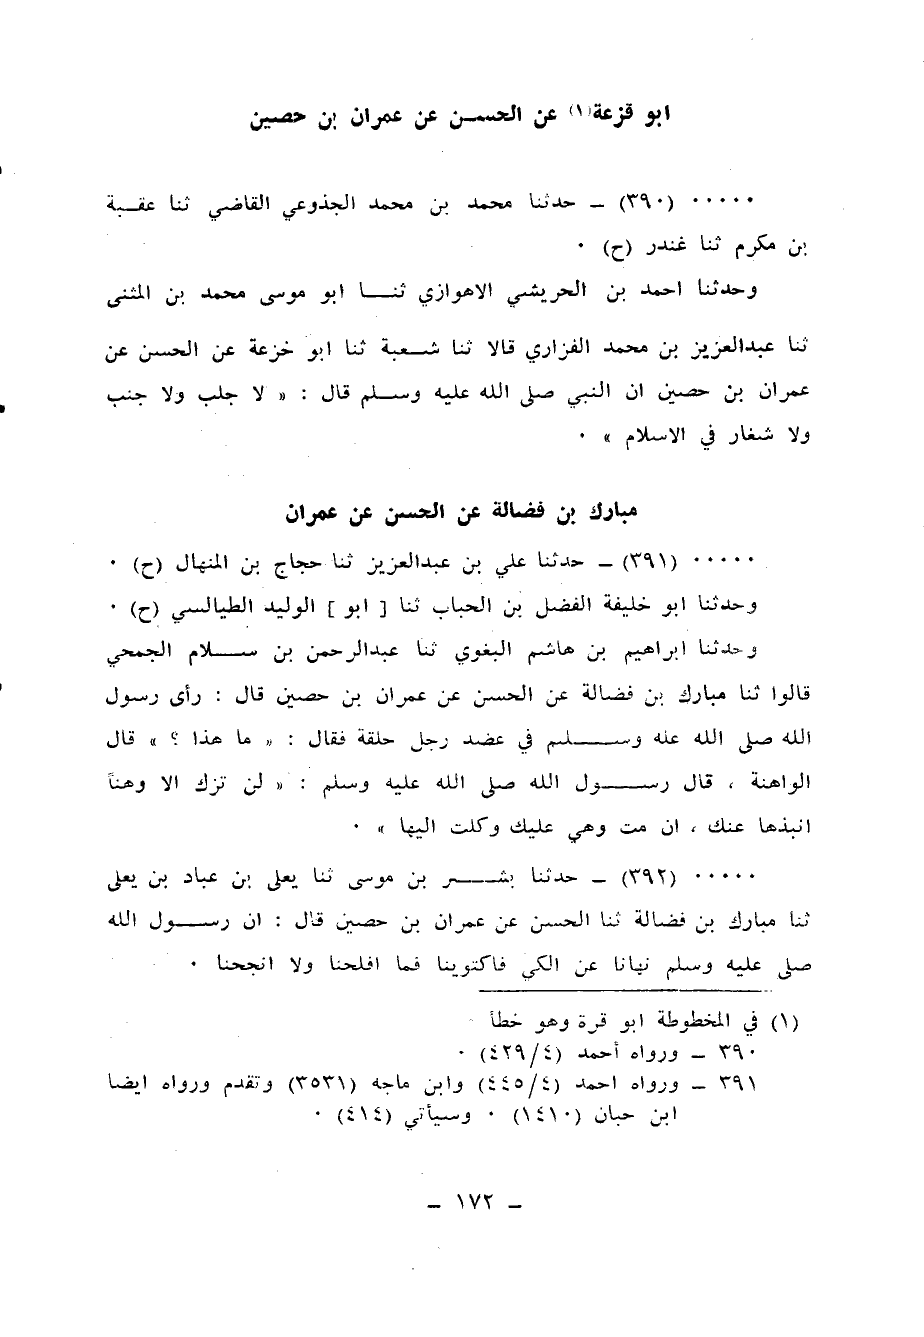 ابو قزعة(١) عن الحسن عن عمران بن حصين
٠٠٠٠٠ (٣٩٠) – حدثنا محمد بن محمد الجذوعي القاضي ثنا عقبة
بن مكرم ثنا غندر (ح) ٠
وحدثنا احمد بن الحريشي الاهوازي ثنا ابو موسى محمد بن المثنى
ثنا عبدالعزيز بن محمد الفزاري قالا ثنا شعبة ثنا ابو خزعة عن الحسن عن
عمران بن حصين ان النبي صلى الله عليه وسلم قال : « لا جلب ولا جنب
ولا شغار في الاسلام » ٠
مبارك بن فضالة عن الحسن عن عمران
٠٠٠٠٠ (٣٩١) – حدثنا علي بن عبدالعزيز ثنا حجاج بن المنهال (ح) ٠
وحدثنا ابو خليفة الفضل بن الحباب ثنا [ ابو ] الوليد الطيالسي (ح) ٠
وحدثنا ابراهيم بن هاشم البغوي ثنا عبدالرحمن بن سلام الجمحي
قالوا ثنا مبارك بن فضالة عن الحسن عن عمران بن حصين قال : رأى رسول
الله صلى الله عله وسلم في عضد رجل حلقة فقال : « ما هذا ؟ » قال
الواهنة ، قال رسول الله صلى الله عليه وسلم : « لن تزك الا وهنا
انبذها عنك ، ان مت وهي عليك وكلت اليها » ٠
٠٠٠٠٠ (٣٩٢) – حدثنا بشر بن موسى ثنا يعلى بن عباد بن يعلى
ثنا مبارك بن فضالة ثنا الحسن عن عمران بن حصين قال : ان رسول الله
صلى عليه وسلم نهانا عن الكي فاكتوينا فما افلحنا ولا انجحنا ٠
(١) في المخطوطة ابو قرة وهو خطأ
٣٩٠ – ورواه أحمد (٤/٤٢٩) ٠
٣٩١ – ورواه احمد (٤/٤٤٥) وابن ماجه (٣٥٣١) وتقدم ورواه ايضا
ابن حبان (١٤١٠) ٠ وسيأتي (٤١٤) ٠
– ١٧٢ –